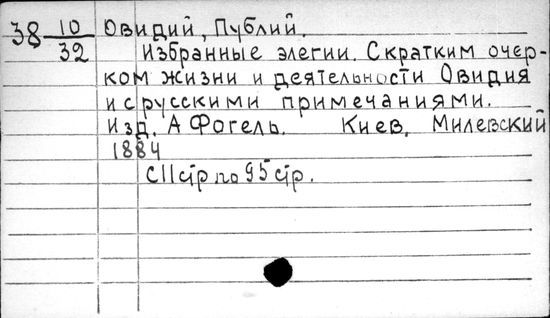 38 10/32 Овидий, Публий.
Избранные элегии. С кратким очер-
ком жизни и деятельности Овидия
и с русскими примечаниями.
Изд. А Фогель. Киев, Милевский
1884
С 11 стр по 95 стр.